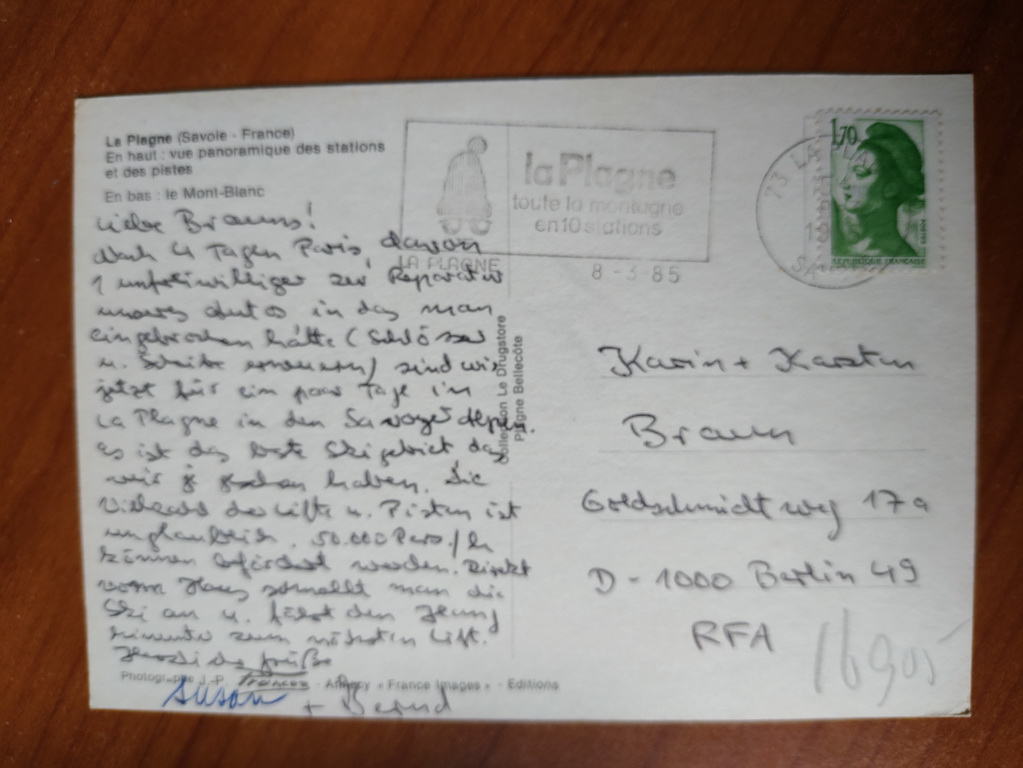 La Plagne (Savoie - France)
En haut : vue panoramique des stations
et des pistes
En bas : le Mont-Blanc
Liebe Brauns!
Nach 4 Tagen Paris, davon
1 unfreiwilliger zur Reparatur
unseres Autos in das man
eingebrochen hatte (Schlösser
u. Scheibe erneuern) sind wir
jetzt für ein paar Tage in
La Plagne in den Savoyer Alpen.
Es ist das beste Skigebiet das
wir je gesehen haben. Die
Vielzahl der Lifte u. Pisten ist
unglaublich. 50.000 Pers./h
können befördert werden. Direkt
vorm Haus schnallt man die
Ski an u. fährt den Hang
hinunter zum nächsten Lift.
Herzliche Grüße
Susan + Bernd
Photographe J.-P. - Annecy « France Images » - Editions
Collection Le Drugstore
Plagne Bellecôte
la Plagne
toute la montagne
en 10 stations
LA PLAGNE
8 - 3 - 85
73 LA
1,70
REPUBLIQUE FRANÇAISE
Karin + Karsten
Braun
Goldschmidtweg 17a
D - 1000 Berlin 49
RFA